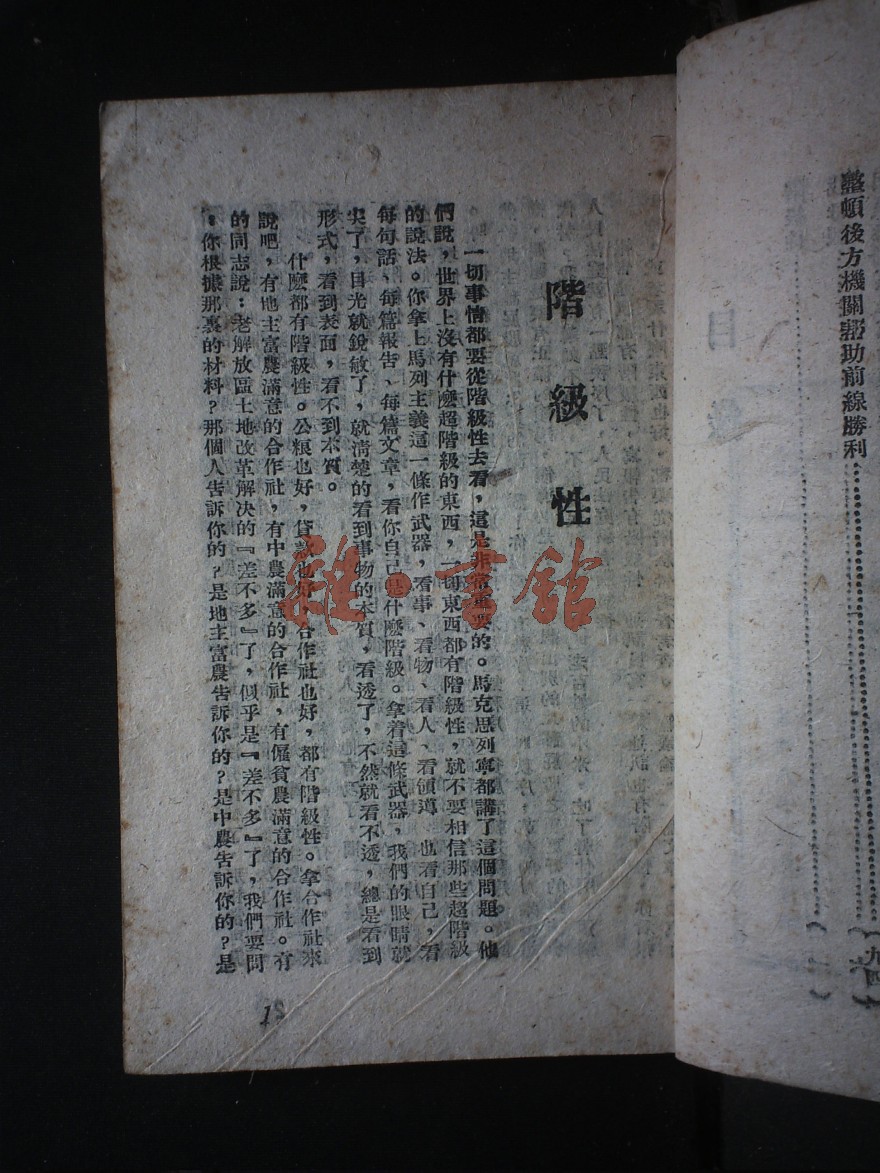 整頓後方機關幫助前線勝利
階級性
一切事情都要從階級性去看，這是非常重要的。馬克思列寧都講了這個問題。他
們說，世界上沒有什麽超階級的東西，一切東西都有階級性，就不要相信那些超階級
的說法。你拿上馬列主義這一條作武器，看事、看物、看人、看領導、也看自己，看
每句話、每篇報告、每篇文章，看你自己是什麽階級。拿着這條武器，我們的眼睛就
尖了，目光就銳敏了，就淸楚的看到事物的本質，看透了，不然就看不透，總是看到
形式，看到表面，看不到本質。
什麽都有階級性。公粮也好，貸款也好，合作社也好，都有階級性。拿合作社來
說吧，有地主富農滿意的合作社，有中農滿意的合作社，有僱貧農滿意的合作社。有
的同志說：老解放區土地改革解决的『差不多』了，似乎是『差不多』了，我們要問
，你根據那裏的材料？那個人告訴你的？是地主富農告訴你的？是中農告訴你的？是
雜·書館